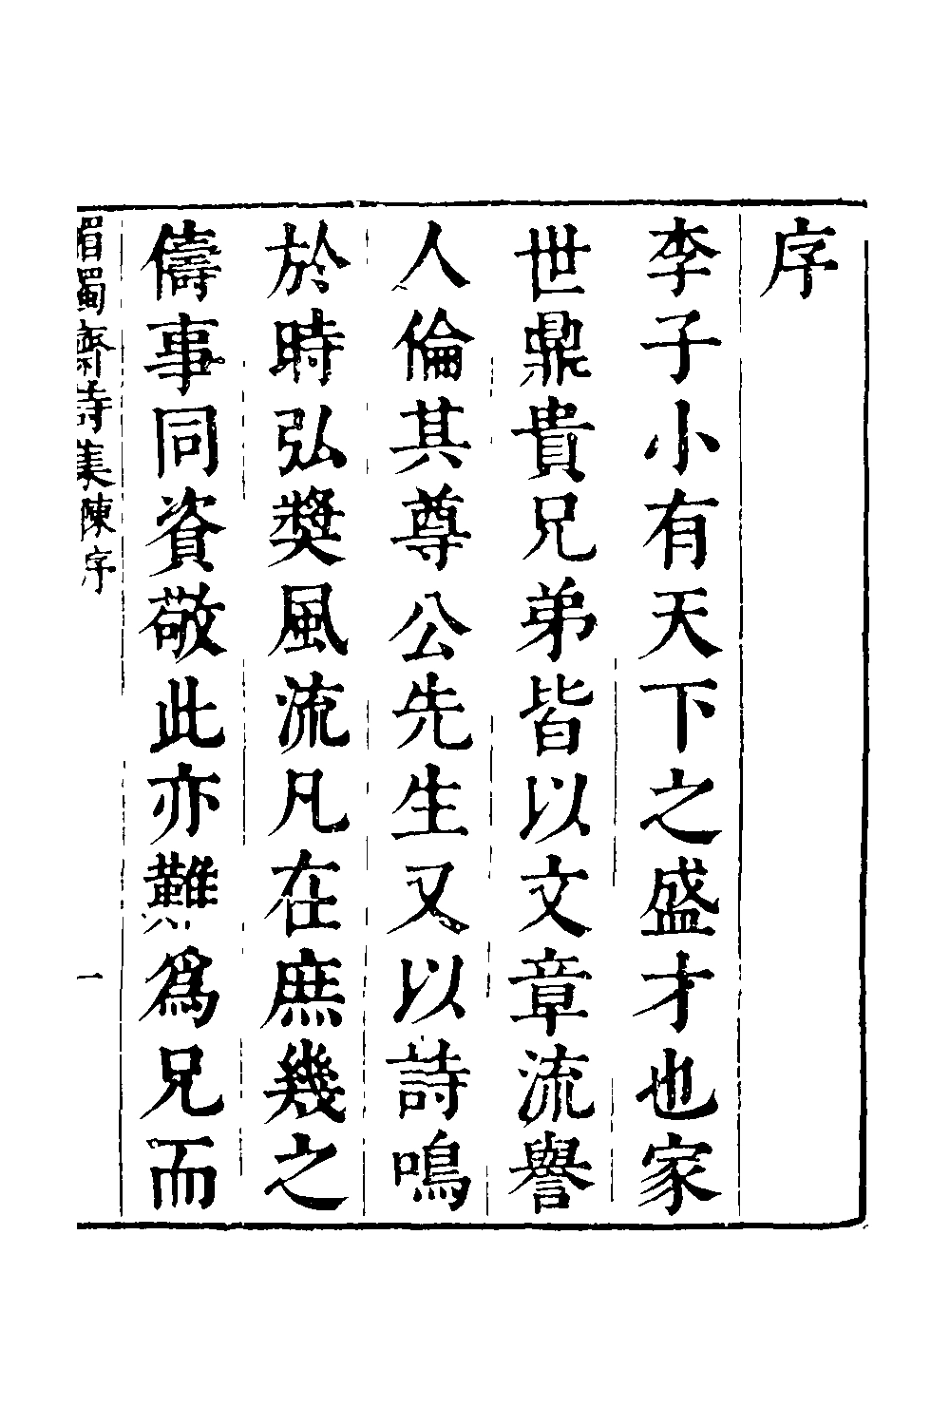 序
李子小有天下之盛才也家
世鼎貴兄弟皆以文章流譽
人倫其尊公先生又以詩鳴
於時弘奬風流凡在庶幾之
儔事同資敬此亦難爲兄而
蜀齋詩集陳序
一